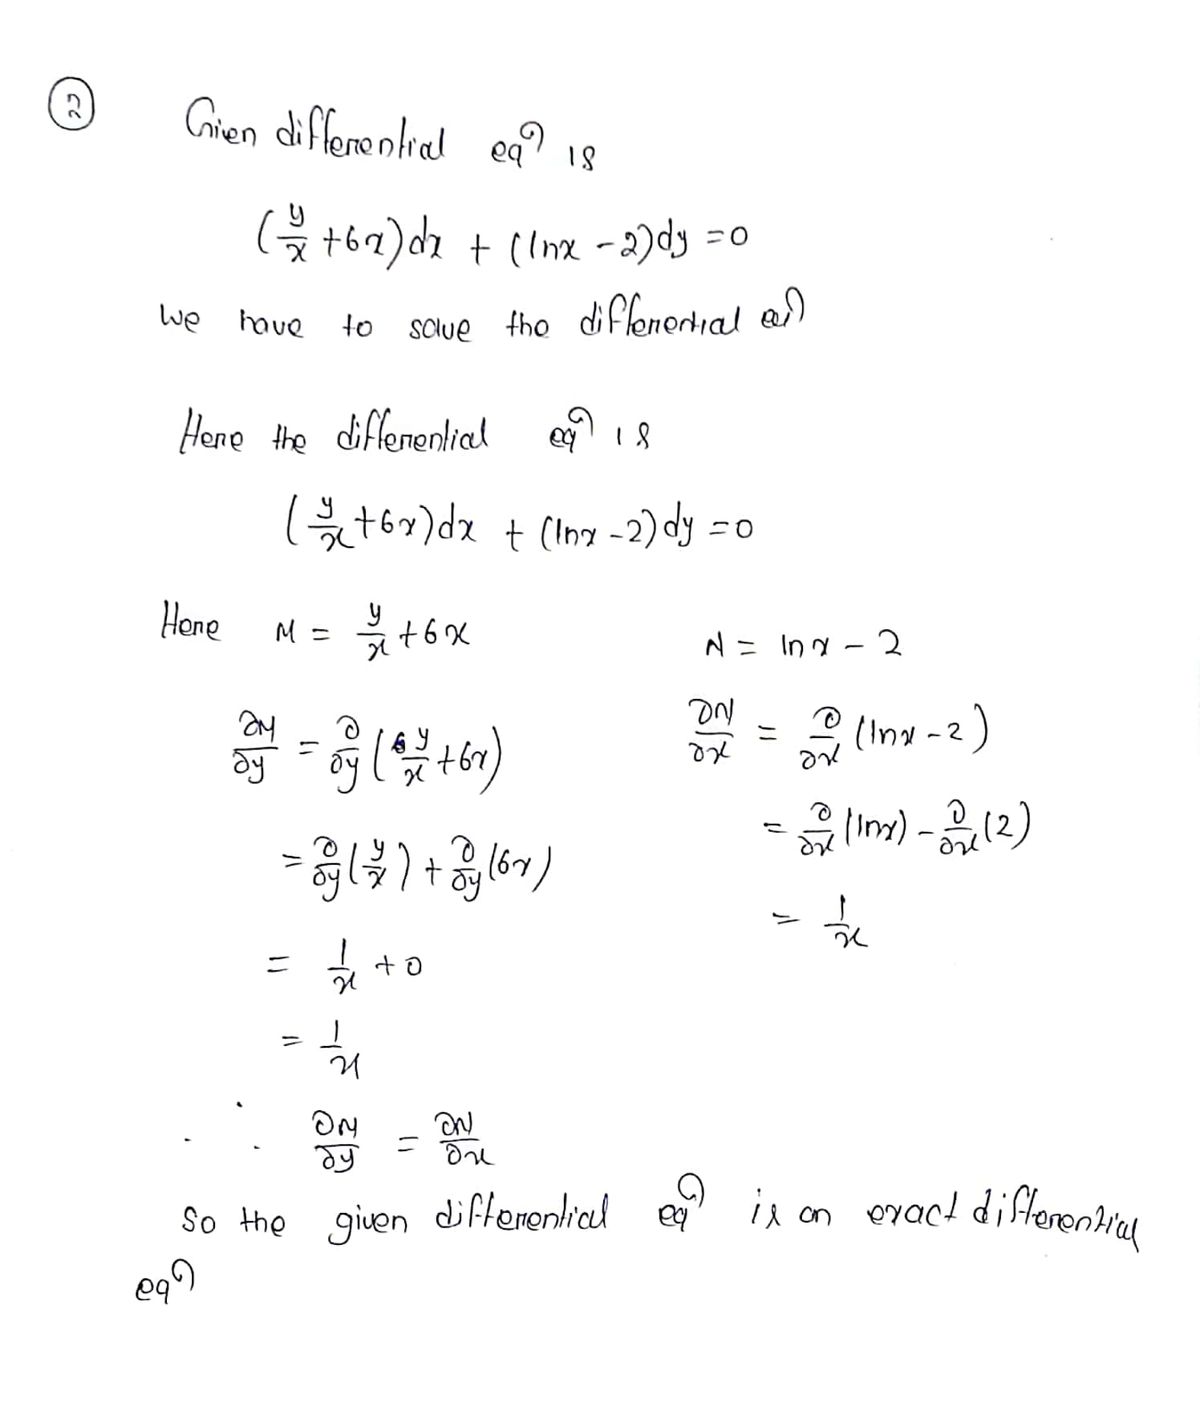 2 Given differential eqn is
(y/x + 6x)dx + (lnx - 2)dy = 0
we have to solve the differential eqn
Here the differential eqn is
(y/x + 6x)dx + (lnx - 2)dy = 0
Here M = y/x + 6x N = lnx - 2
∂M/∂y = ∂/∂y (y/x + 6x) ∂N/∂x = ∂/∂x (lnx - 2)
= ∂/∂y (y/x) + ∂/∂y (6x) = ∂/∂x (lnx) - ∂/∂x (2)
= 1/x + 0 = 1/x
= 1/x
∴ ∂M/∂y = ∂N/∂x
So the given differential eqn is an exact differential
eqn